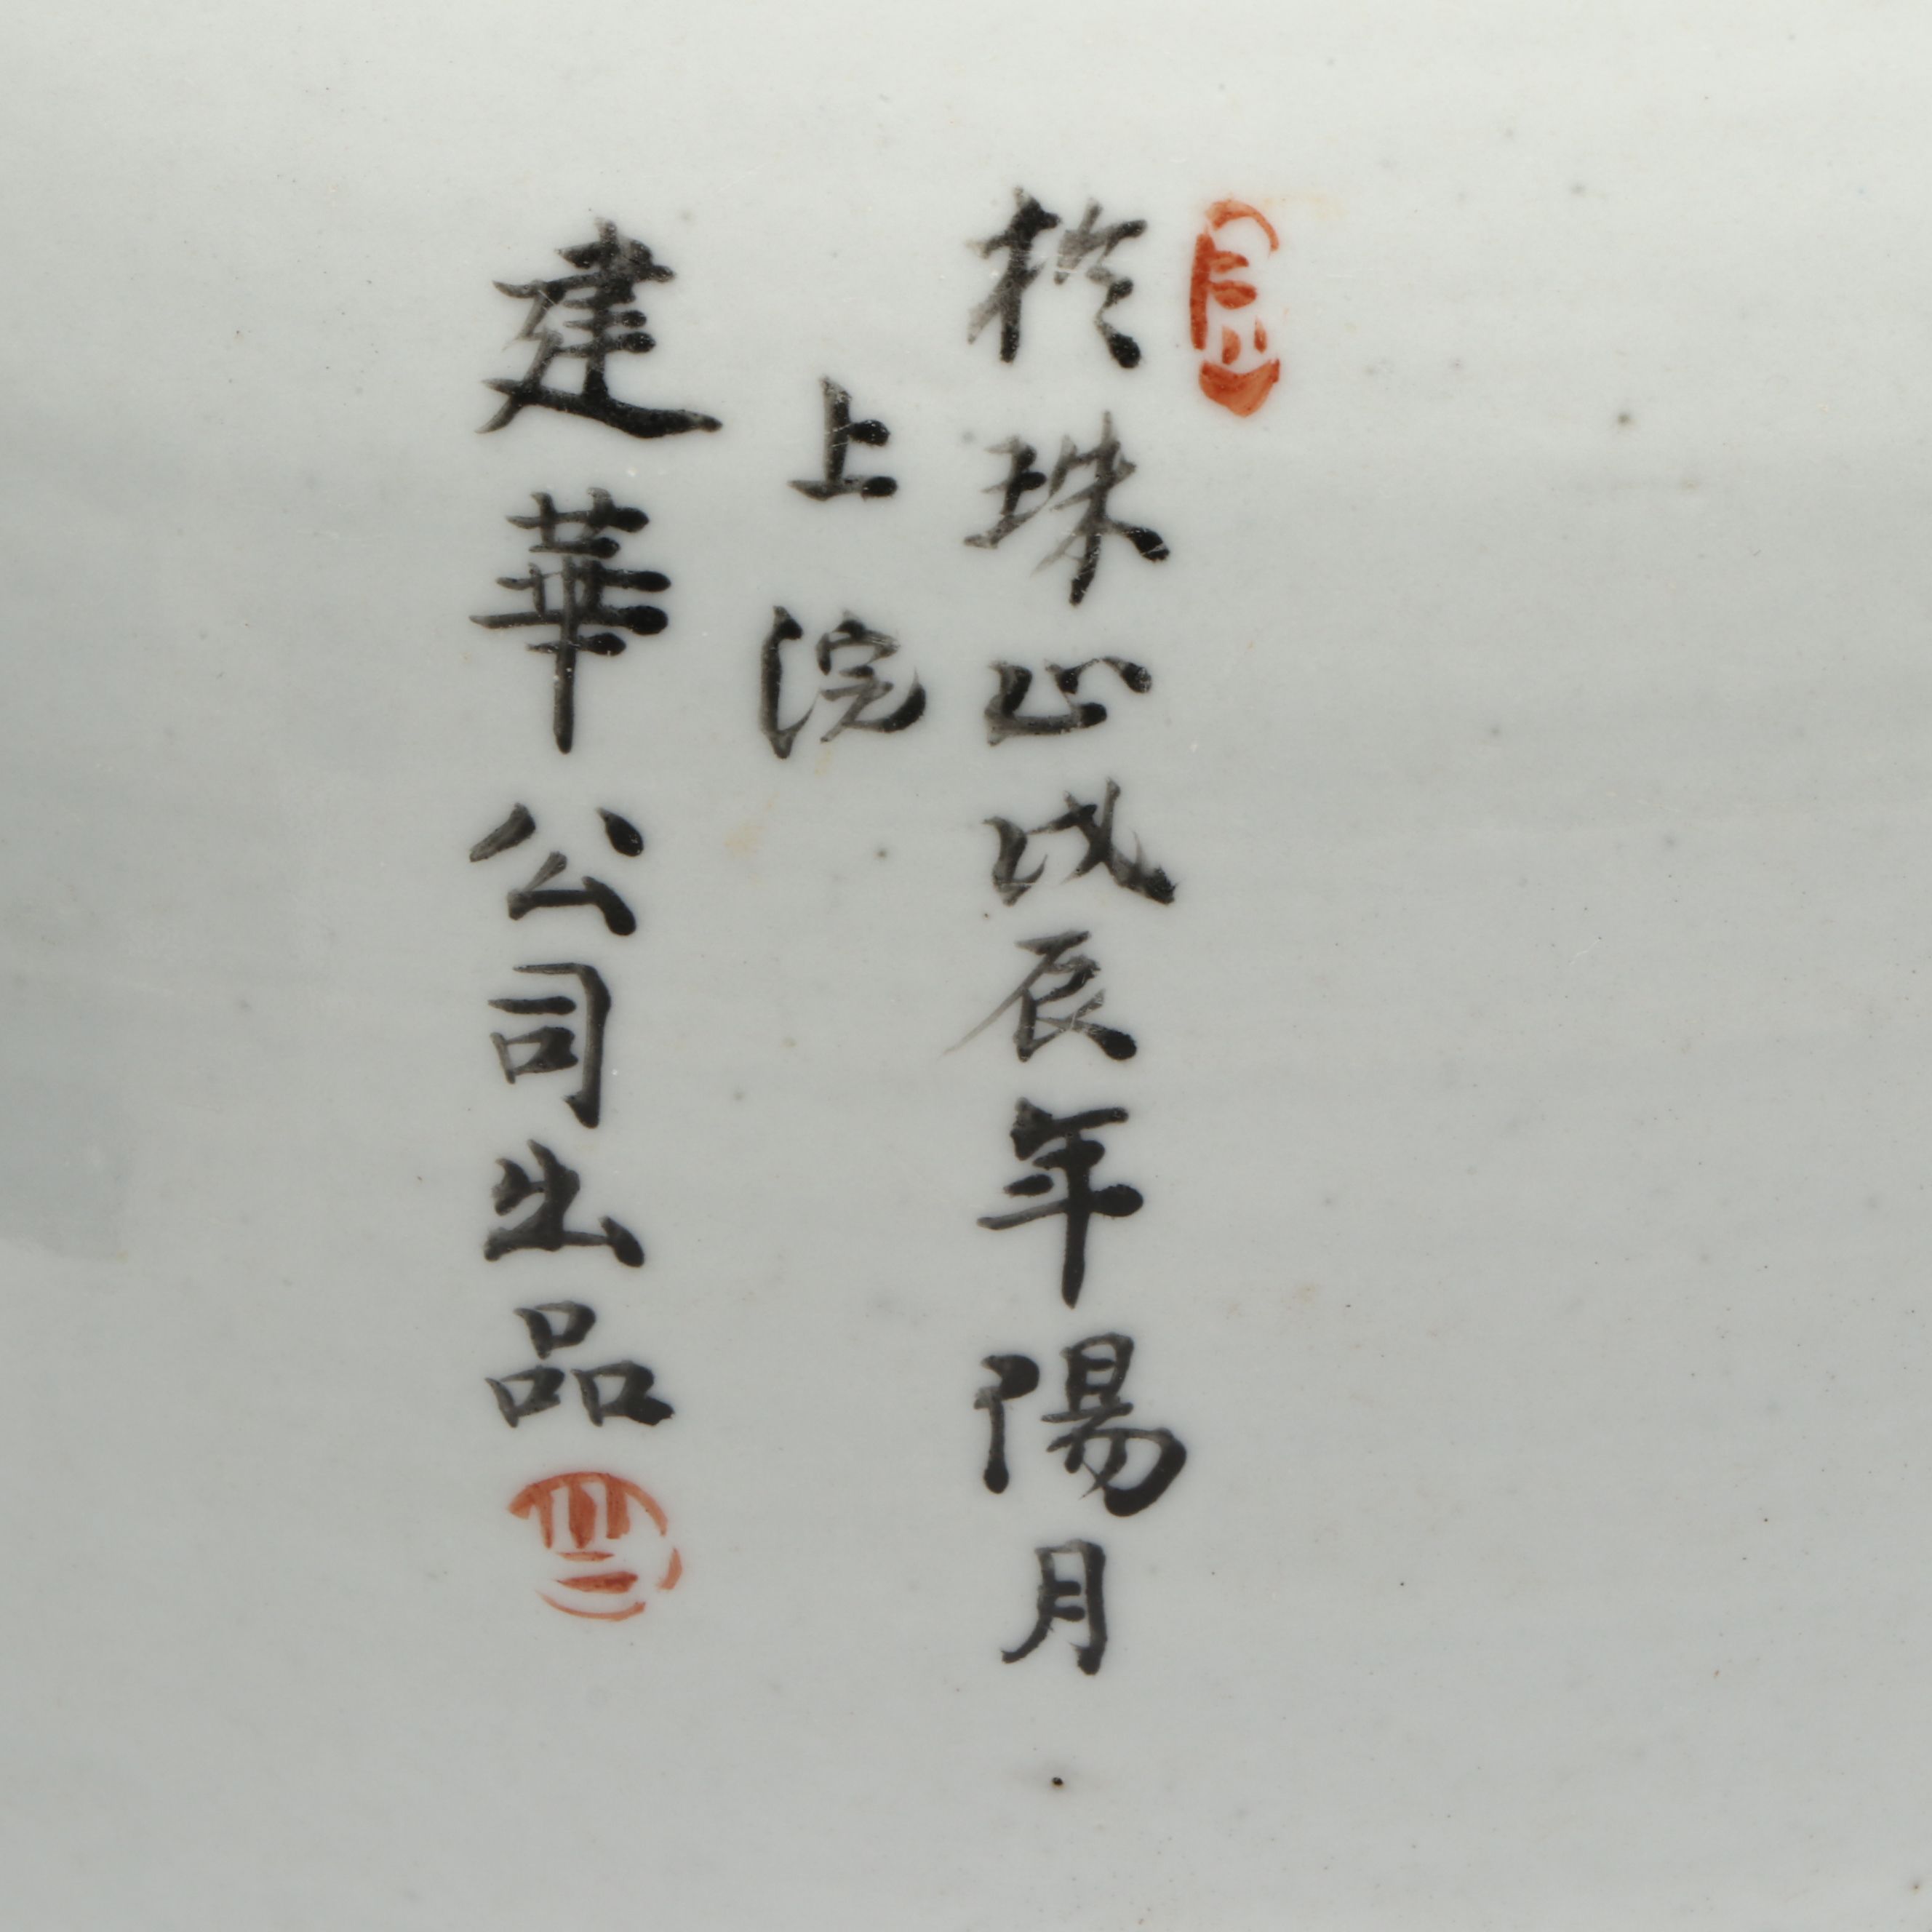 於珠山戊辰年陽月
上浣
建華公司出品